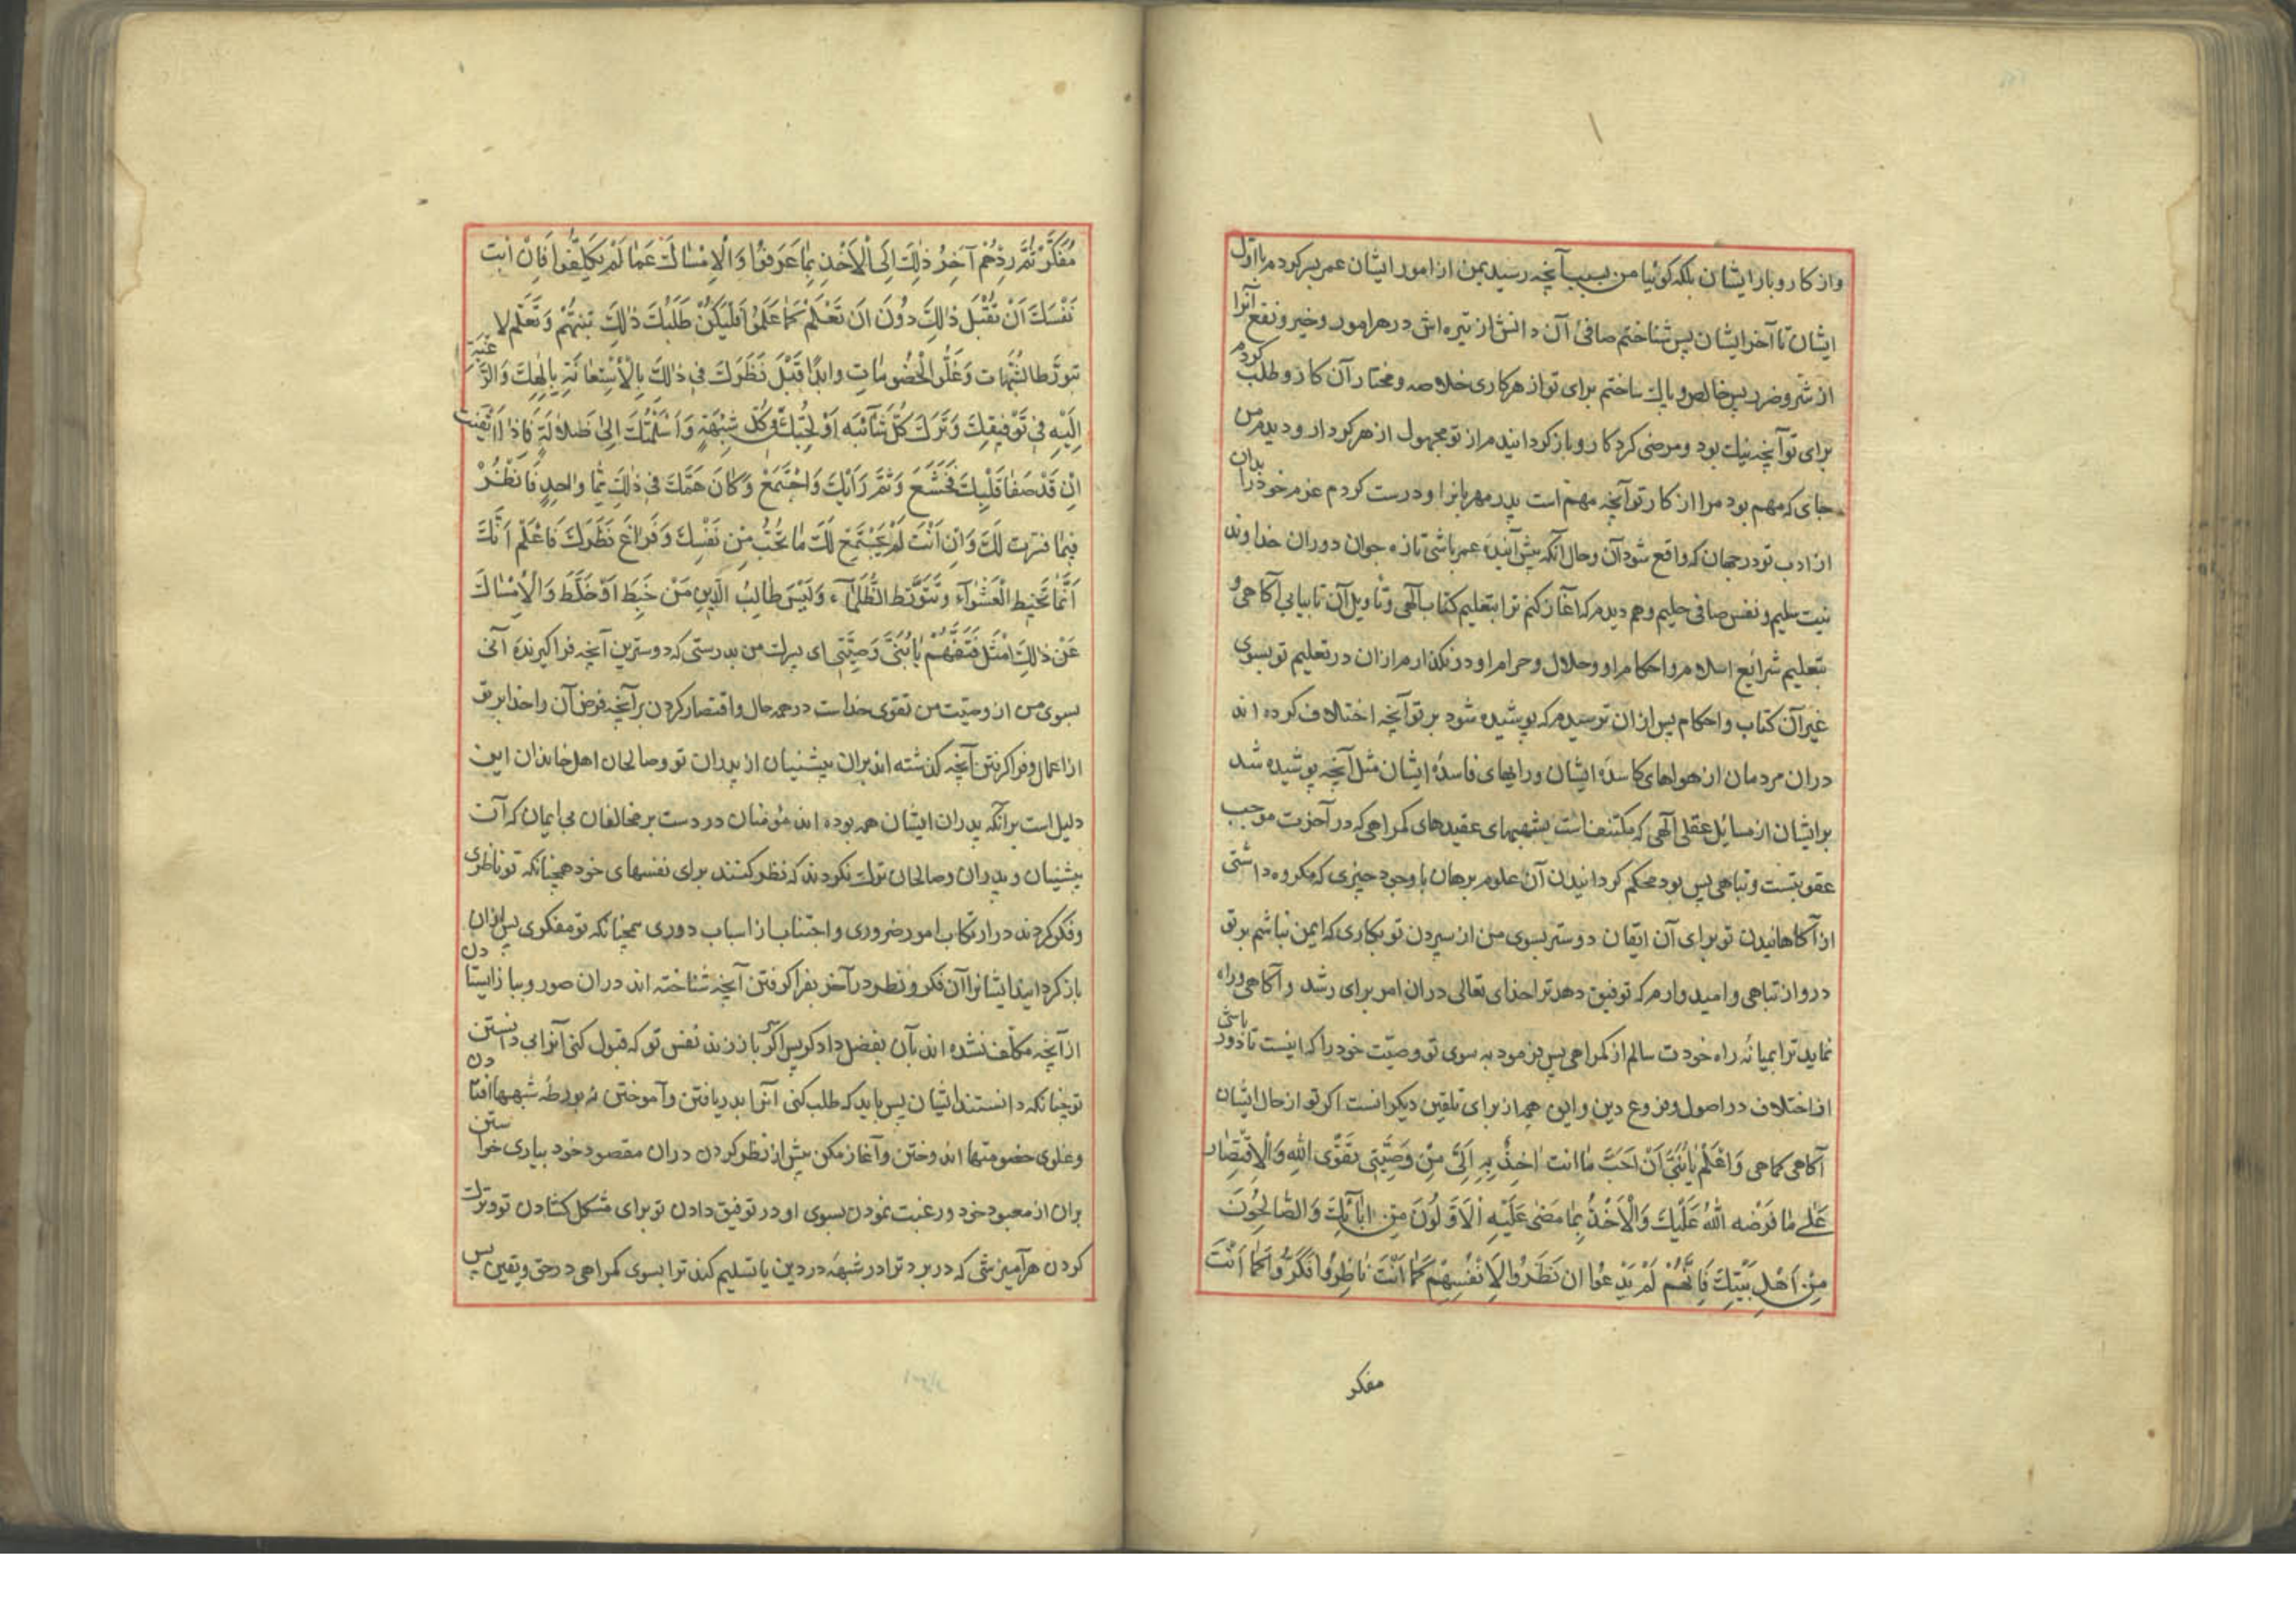 واز کار وبار ایشان بلکه کوئیا من بسبب آنچه رسید بمن از امور ایشان عمر بسر کردم با اول
ایشان تا آخر ایشان پس شناختم صافی آن دانش از تیره اش در هر امور وخیر ونفع آنرا
از شر وضرر پس خالص وپاک ساختم برای تو از هر کاری خلاصه ومختار آن کار و طلب کردم
برای تو آنچه نیک بود ومرضی کردکار وباز کردانیدم از تو مجهول از هر کردار ودیدم من
جای که مهم بود مرا از کار تو آنچه مهم است پدر مهربانرا ودرست کردم عزم خود را بدان
از ادب تو در جهان که واقع شود آن وحال آنکه پیش آینده عمر باشی تازه جوان دوران خداوند
نیت سلیم ونفس صافی حلیم وهم دیدم که آغاز کنم ترا بتعلیم کتاب آلهی وتأویل آن تا بیابی آکاهی و
بتعلیم شرائع اسلام واحکام او وحلال وحرام او ودر نکذارم از ان در تعلیم تو بسوی
غیر آن کتاب واحکام پس از ان ترسیدم که پوشیده شود بر تو آنچه اختلاف کرده اند
دران مردمان از هواهای کاسدهٔ ایشان ورایهای فاسدهٔ ایشان مثل آنچه پوشیده شد
بر ایشان از مسائل عقلی آلهی که مکتنف است بشبههای عقیدهای کمراهی که در آخرت موجب
عقوبتست وتباهی پس بود محکم کردانیدن آن علوم برهان با وجود چیزی که مکروه داشتی
از آکاهانیدن تو برای آن ایقان دوستر بسوی من از سپردن تو بکاری که ایمن نباشم بر تو
درو از تباهی وامیدوارم که توفیق دهد ترا خدای تعالی دران امر برای رشد وآکاهی وراه
نماید ترا بمیانه راه خودت سالم از کمراهی پس فرمود به سوی تو وصیّت خود را که اینست تا دور باشی
از اختلاف در اصول وفروع دین واین هم از برای تلقین دیکرانست اکر تو از حال ایشان
آکاهی کماهی وَاعْلَمْ یَابُنَیَّ اَنَّ اَحَبَّ مَا انت اٰخِذٌ بِهِ اِلَیَّ مِنْ وَصِیَّتِی تَقْوَی اللهِ وَالْاِقْتِصَارُ
عَلٰی مَا فَرَضَه اللهُ عَلَیْكَ وَالْاَخْذُ بِمَا مَضٰی عَلَیْهِ الْاَوَّلُونَ مِن اٰبَآئِكَ وَالصَّالِحُونَ
مِنْ اَهْلِ بَیْتِكَ فَاِنَّهُمْ لَمْ یَدَعُوا ان نَظَرُوا لِاَنْفُسِهِمْ کَمَا اَنْتَ نَاظِرٌ وَفَکَّرُوا کَمَا اَنْتَ
مفکر
مُفَکِّرٌ ثُمَّ رَدَّهُمْ آخِرُ ذٰلِكَ اِلَی الْاَخْذِ بِمَا عَرَفُوا وَالْاِمْسَاكِ عَمَّا لَمْ یُکَلَّفُوا فَاِنْ ابت
نَفْسُكَ اَنْ تَقْبَلَ ذٰلِكَ دُوْنَ اَن تَعْلَمَ کَمَا عَلِمُوا فَلْیَکُنْ طَلَبُكَ ذٰلِكَ بِتَفَهُّمٍ وَتَعَلُّمٍ لا
بتورّط الشُّبُهَات وَغُلُوِّ الْخُصُومَاتِ وابدَأ قَبْلَ نَظَرِكَ فِی ذٰلِكَ بِالْاِسْتِعَانَةِ بِاِلٰهِكَ وَالرَّغْبَةِ
اِلَیْهِ فِی تَوْفِیقِكَ وَتَرْكِ کُلِّ شَآئِبَه اَوْ لَجَتْكَ فِی کُلِّ شُبْهَةٍ وَاَسْلَمَتْكَ اِلٰی ضَلَالَةٍ فَاِذَا اَیْقَنْت
اَنْ قَدْ صَفَا قَلْبُكَ فَخَشَعَ وَتَمَّ رَایُكَ وَاجْتَمَعَ وَکَانَ هَمُّكَ فِی ذٰلِكَ هَمًّا واحِدًا فَانْظُرْ
فِیمَا فسّرت لَكَ وَاِنْ اَنْتَ لَمْ یَجْتَمِعْ لَكَ مَا تُحِبُّ مِنْ نَفْسِكَ وَفَرَاغِ نَظَرِكَ فَاعْلَمْ اَنَّكَ
اِنَّمَا تَخْبِطُ الْعَشْوَآءَ وَتَتَوَرَّطُ الظَّلْمَآءَ وَلَیْسَ طَالِبُ الدِّینِ مَنْ خَبَطَ اَوْ خَلَطَ وَالْاِمْسَاكُ
عَنْ ذٰلِكَ اَمْثَلُ فَتَفَهَّمْ یَابُنَیَّ وَصِیَّتِی ای پسرك من بدرستی که دوسترین آنچه فراکیرندهٔ آنی
بسوی من از وصیّت من تقوی خداست در همه حال واقتصار کردن بر آنچه فرض آن را خدا بر تو
از اعمال وفرا کرفتن آنچه کذشته اند بران پیشینیان از پدران تو وصالحان اهل خاندان این
دلیل است بر آنکه پدران ایشان همه بوده اند مؤمنان درست بر مخالفان بی ایمان که آن
پیشینیان وپدران وصالحان ترك نکردند که نظر کنند برای نفسهای خود همچنانکه تو ناظری
وفکر کردند در ارتکاب امور ضروری واجتناب از اسباب دوری همچنانکه تو مفکری پس از ان
باز کردانید ایشانرا آن فکر ونظر در آخر بفرا کرفتن آنچه شناخته اند دران صور وبباز ایستادن
از آنچه مکلّف نشده اند بآن بفضل دادکر پس اکر باز زند نفس تو که قبول کنی آنرا بی دانستن
تو چنانکه دانستند ایشان پس باید که طلب کنی آنرا بدریافتن وآموختن نه بورطه شبهها افتادن
وغلوی خصومتها اندوختن وآغاز مکن پیش از نظر کردن دران مقصود خود بیاری خواستن
بران از معبود خود ورغبت نمودن بسوی او در توفیق دادن تو برای مشکل کشادن تو وترك
کردن هر آمیزشی که در برد ترا در شبههٔ در دین یا تسلیم کند ترا بسوی کمراهی در حق ویقین پس